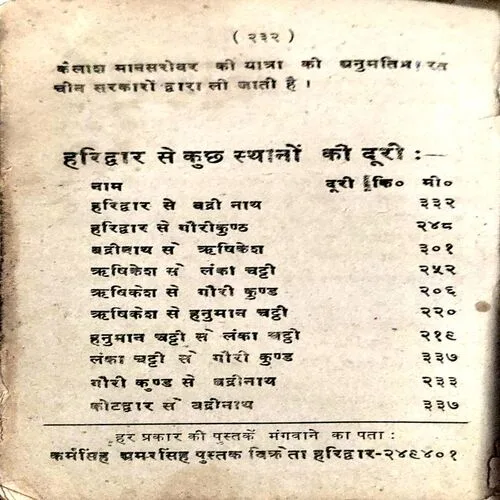 ( २३२ )
कैलाश मानसरोवर की यात्रा की अनुमति भारत
चीन सरकारों द्वारा ली जाती है ।
हरिद्वार से कुछ स्थानों की दूरी :—
नाम दूरी कि० मी०
हरिद्वार से बद्री नाथ ३३२
हरिद्वार से गौरीकुण्ठ २४८
बद्रीनाथ से ऋषिकेश ३०१
ऋषिकेश से लंका चट्टी २५२
ऋषिकेश से गौरी कुण्ड २०६
ऋषिकेश से हनुमान चट्टी २२०
हनुमान चट्टी से लंका चट्टी २१९
लंका चट्टी से गौरी कुण्ड ३३७
गौरी कुण्ड से बद्रीनाथ २३३
कोटद्वार से बद्रीनाथ ३३७
हर प्रकार की पुस्तकें मंगवाने का पता :
कर्मसिंह अमरसिंह पुस्तक विक्रेता हरिद्वार-२४९४०१